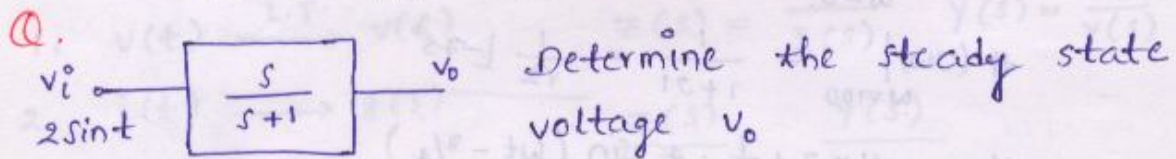 Q.
vi s/(s+1) v0 Determine the steady state
2sint voltage v0